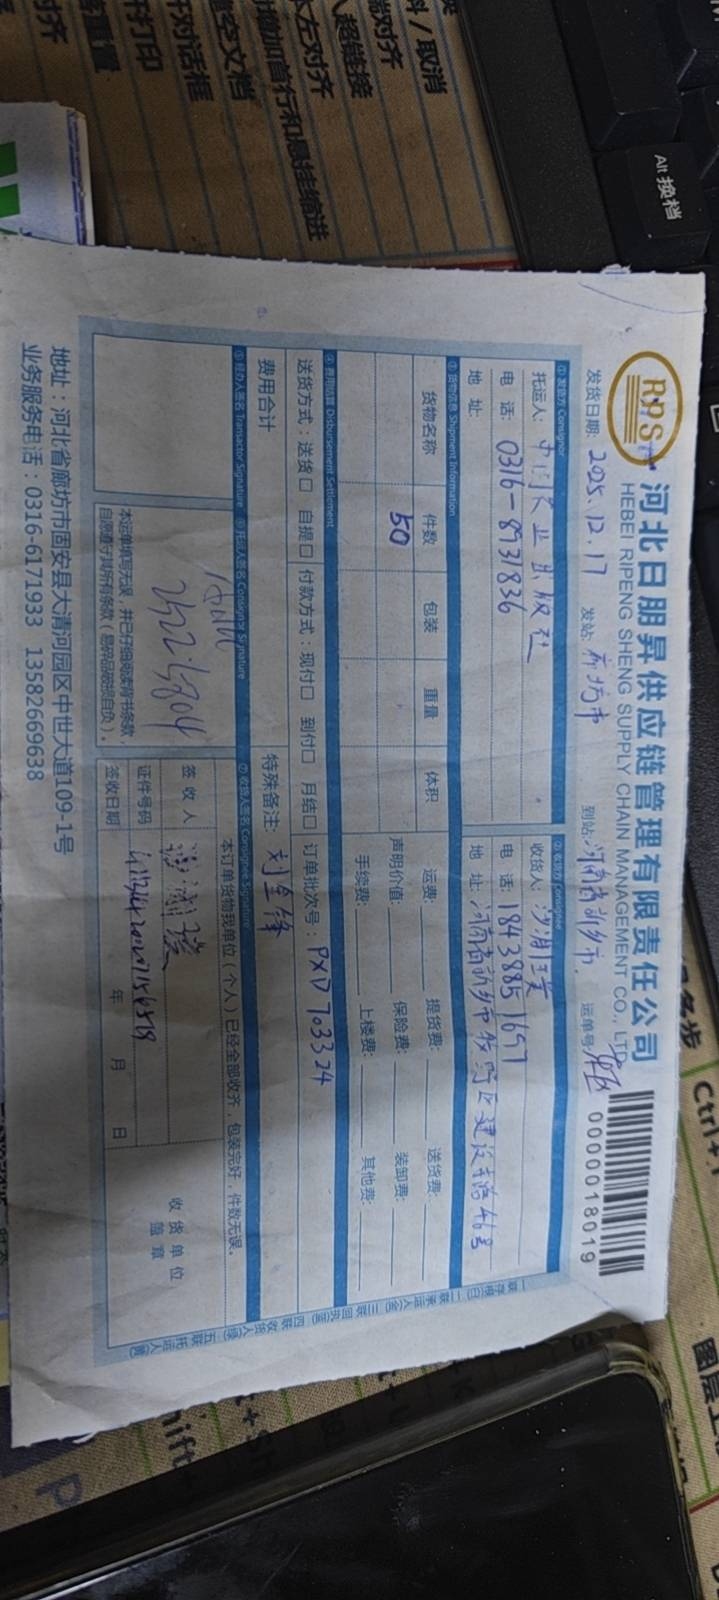 RPS
河北日朋昇供应链管理有限责任公司
HEBEI RIPENG SHENG SUPPLY CHAIN MANAGEMENT CO., LTD
0000018019
发货日期: 2025.12.17 发站: 廊坊市 到站: 河南省新乡市 运单号:
① 发货方 Consignor
② 收货方 Consignee
托运人: 中国农业出版社
收货人:
电 话: 0316-8931836
电 话: 18438851697
地 址:
地 址: 河南省新乡市牧野区建设路46号
③ 货物信息 Shipment Information
货物名称 件数 包装 重量 体积
50
运费: 提货费: 送货费:
声明价值: 保险费: 装卸费:
手续费: 上楼费: 其他费:
④ 费用结算 Disbursement Settlement
送货方式: 送货□ 自提□ 付款方式: 现付□ 到付□ 月结□ 订单批次号: PXD703324
费用合计
特殊备注: 刘全锋
⑤ 经办人签名 Transactor Signature ⑥ 托运人签名 Consignor Signature ⑦ 收货人签名 Consignee Signature
本订单货物我单位(个人)已经全部收齐,包装完好,件数无误。
签 收 人
证件号码
签收日期 年 月 日
收货单位
盖 章
本运单填写无误,并已仔细阅读背书条款,
自愿遵守其所有条款(易碎品破损自负)。
一联存根(白) 二联承运人(金) 三联回执(蓝) 四联收货人(绿) 五联托运人(黄)
地址:河北省廊坊市固安县大清河园区中世大道109-1号
业务服务电话:0316-6171933 13582669638
料/取消
端对齐
超链接
左对齐
增加首行和悬挂缩进
空文档
开对话框
打印
重置
对齐
Alt 换档
Ctrl+